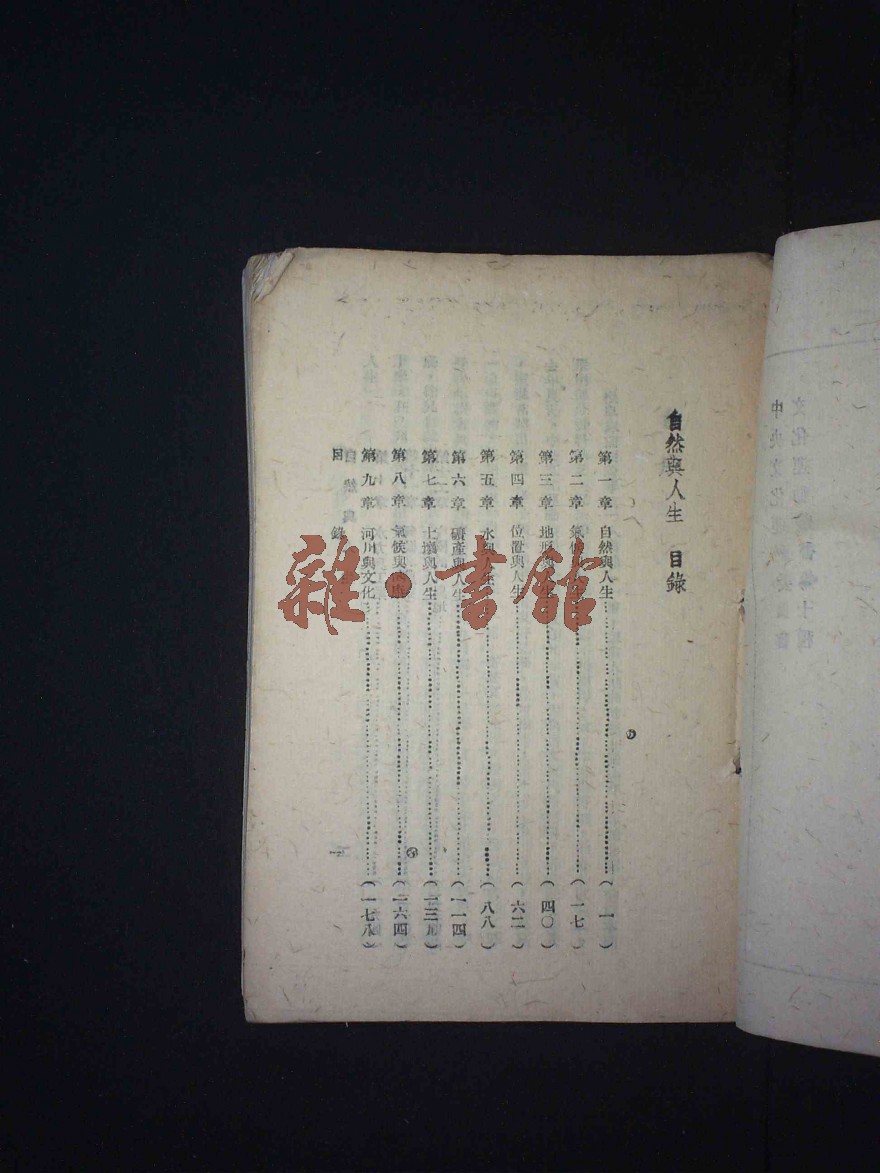 自然與人生 目錄
第一章 自然與人生……(一)
第二章 氣候與人生……(一七)
第三章 地形與人生……(四〇)
第四章 位置與人生……(六二)
第五章 水與人生……(八八)
第六章 礦產與人生……(一一四)
第七章 土壤與人生……(一三九)
第八章 氣候與……(一六四)
第九章 河川與文化……(一七八)
目錄
一
雜·書館